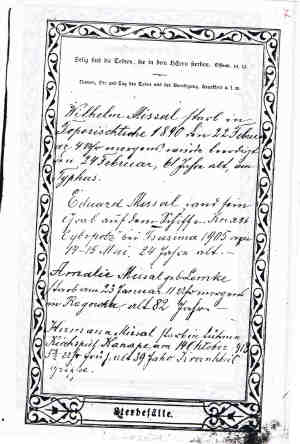 Selig sind die Toten, die in dem HErrn sterben. Offenb. 14, 13.
Namen, Ort und Tag des Todes und der Beerdigung, Krankheit u. s. w.
Wilhelm Missal starb in
1890 den 22 Februar
4 Uhr morgens wurde beerdigt
den 24 Februar, 61 Jahre alt, am
Typhus.
Eduard Missal, fand sein
Grab auf dem Schiff
bei Tsusima 1905 den
14-15 Mai, 24 Jahre alt.
Amalie Missal geb Lemke
starb am 23 Januar 11 Uhr morgens
in alt 82 Jahre
Hermann Missal starb in
Kirchspiel am 14 Oktober 918
Uhr früh, alt 39 Jahr Krankheit
Grippe.
Sterbefälle.